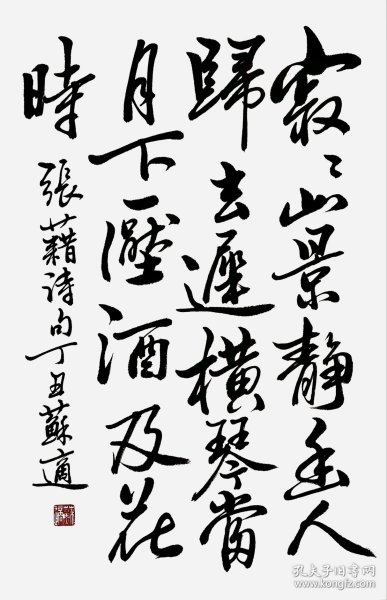 寂〻山景靜幽人
歸去遲橫琴當
月下壓酒及花
時
張藉诗句丁丑蘇適
孔夫子旧书网